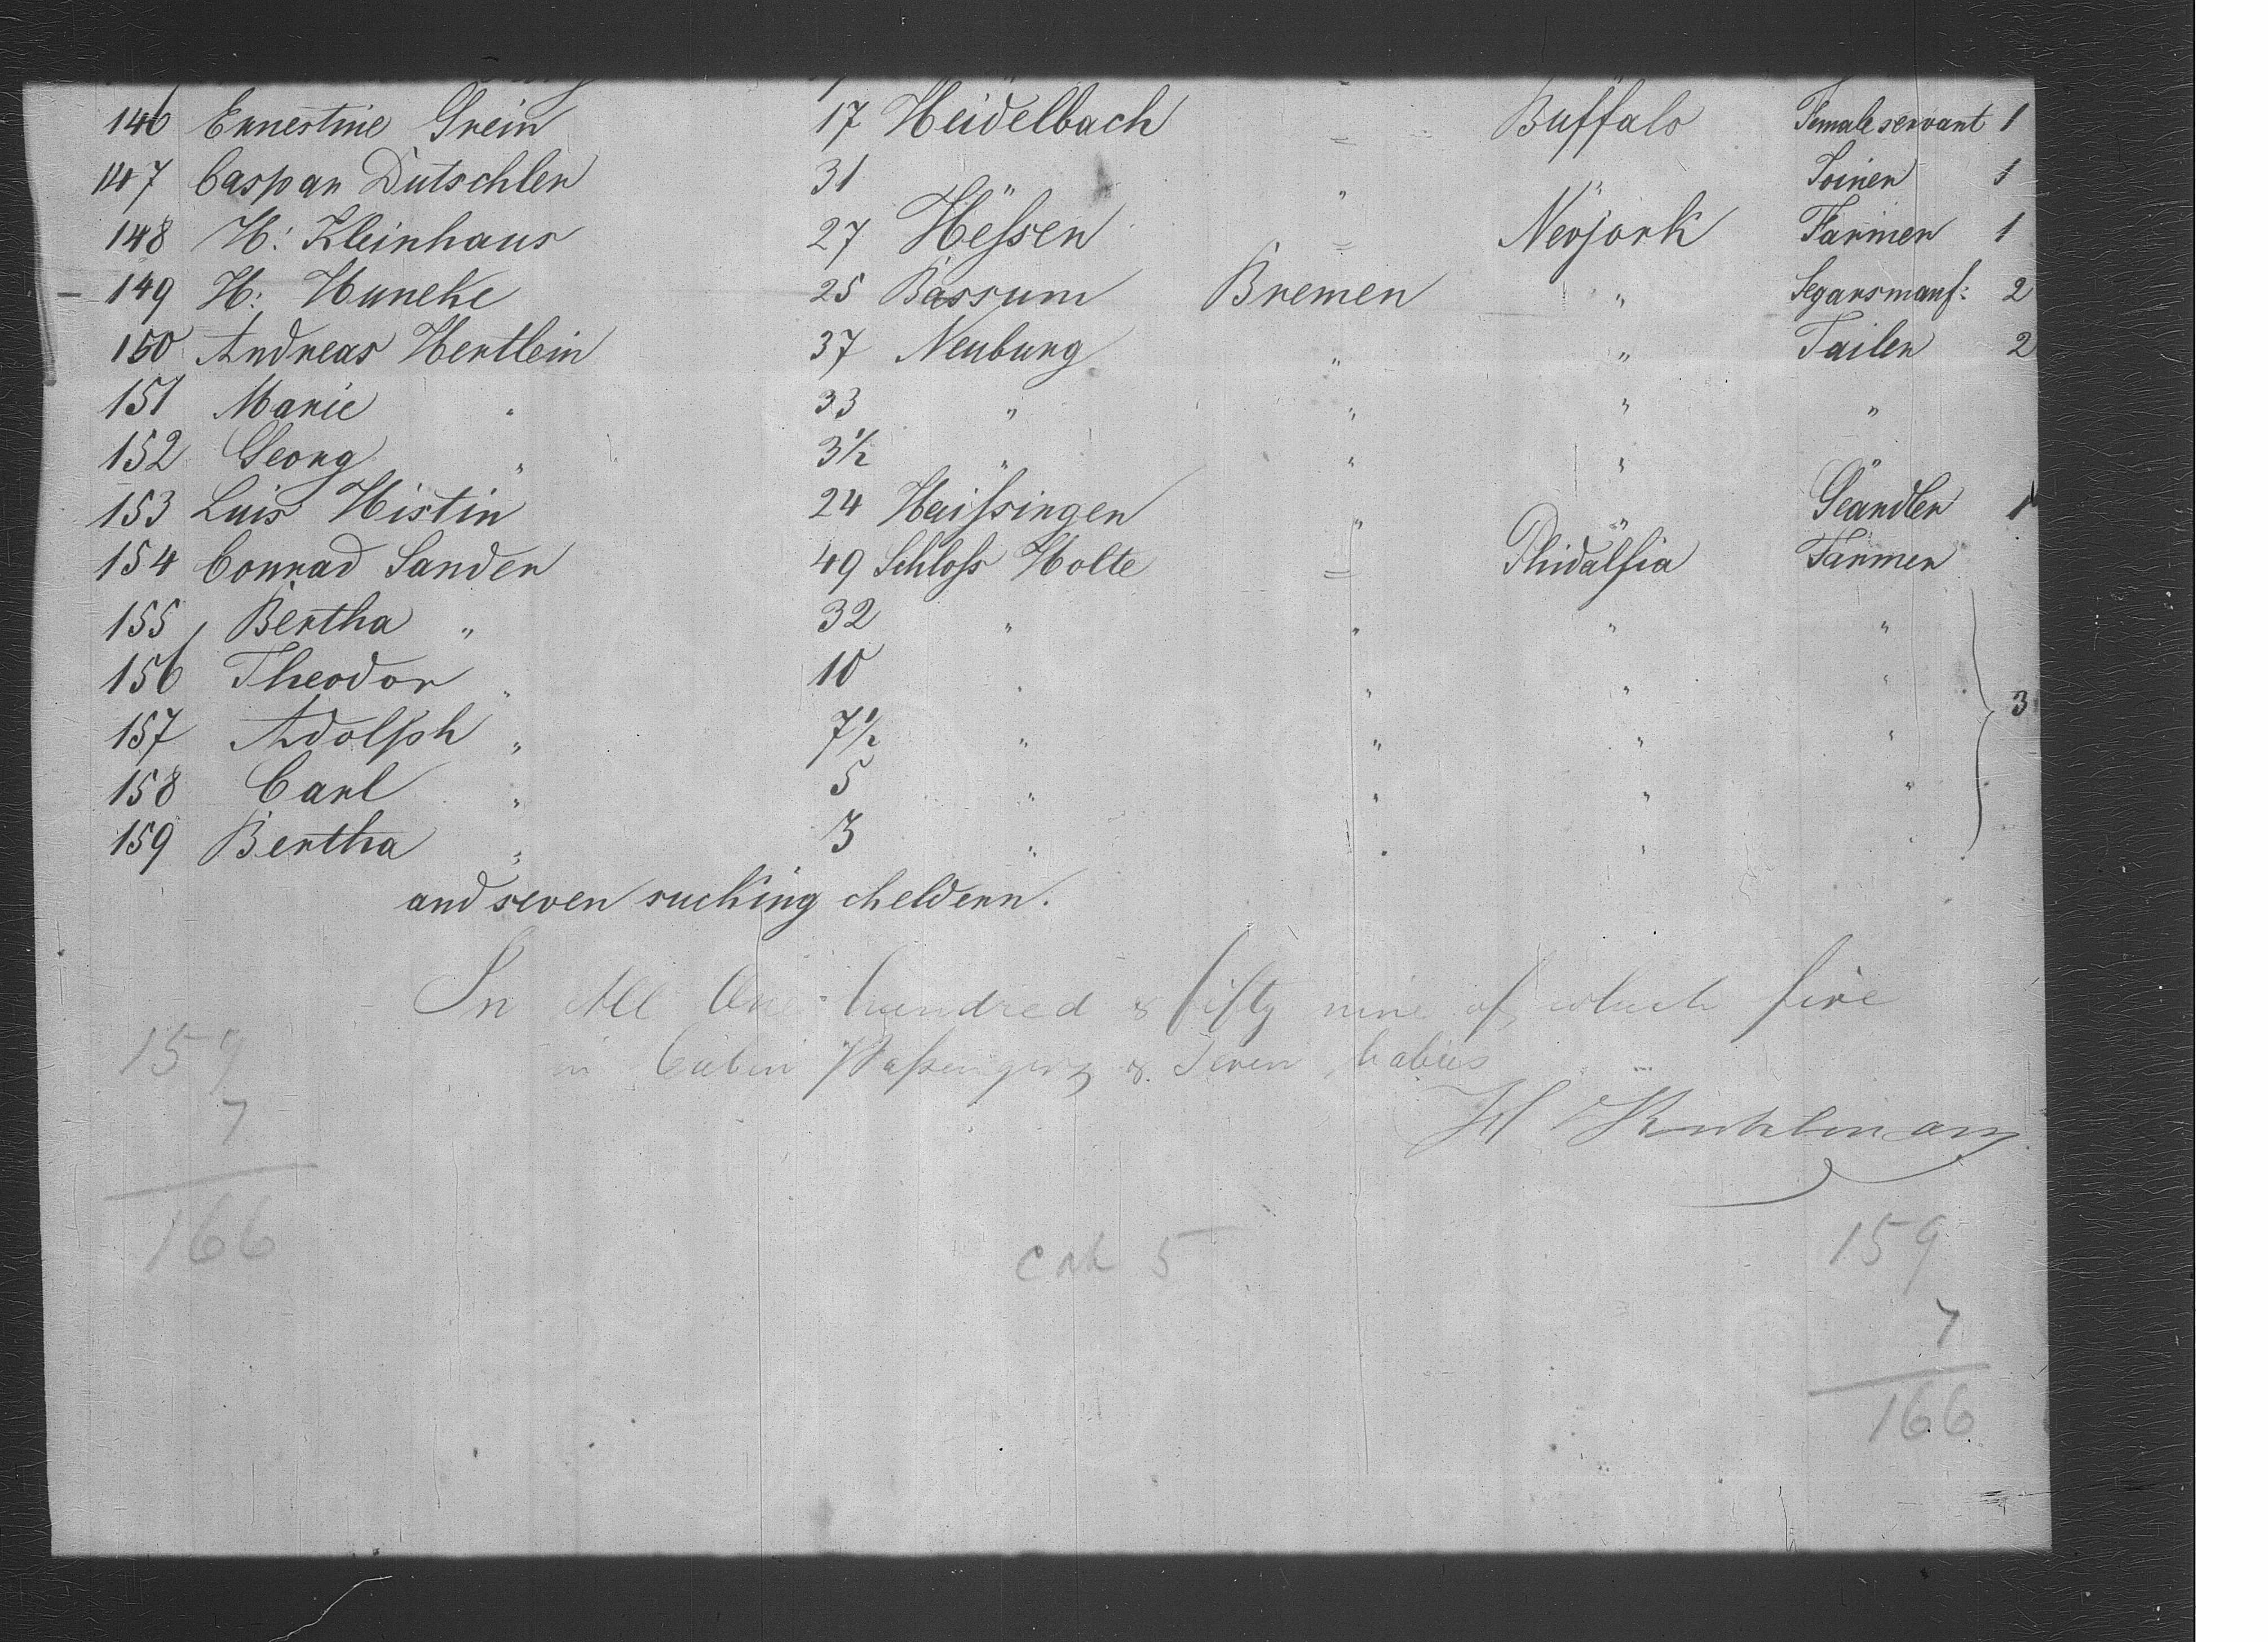 146 Ernestine Grein 17 Heidelbach = Buffalo Female servant 1
147 Caspar Dutschler 31 " " " Joiner 1
148 H: Kleinhaus 27 Heſsen = Nevjork Farmer 1
149 H: Huneke 25 Bassum Bremen " Segarsmanf: 2
150 Andreas Hertlein 37 Neuburg " " Tailer 2
151 Marie " 33 " " " "
152 Georg " 3½ " " " "
153 Luis Histin 24 Haiſsingen " " 1
154 Conrad Sander 49 Schloſs Holte = Phidalfia Farmer
155 Bertha " 32 " " " "
156 Theodor " 10 " " " "
157 Adolph " 7½ " " " " 3
158 Carl " 5 " " " "
159 Bertha " 3 " " " "
and seven sucking cheldern.
In All One hundred & fifty nine of which five
in Cabin Paſsengers & Seven babies
H Kuhlmann
159
7
166
cab 5
159
7
166